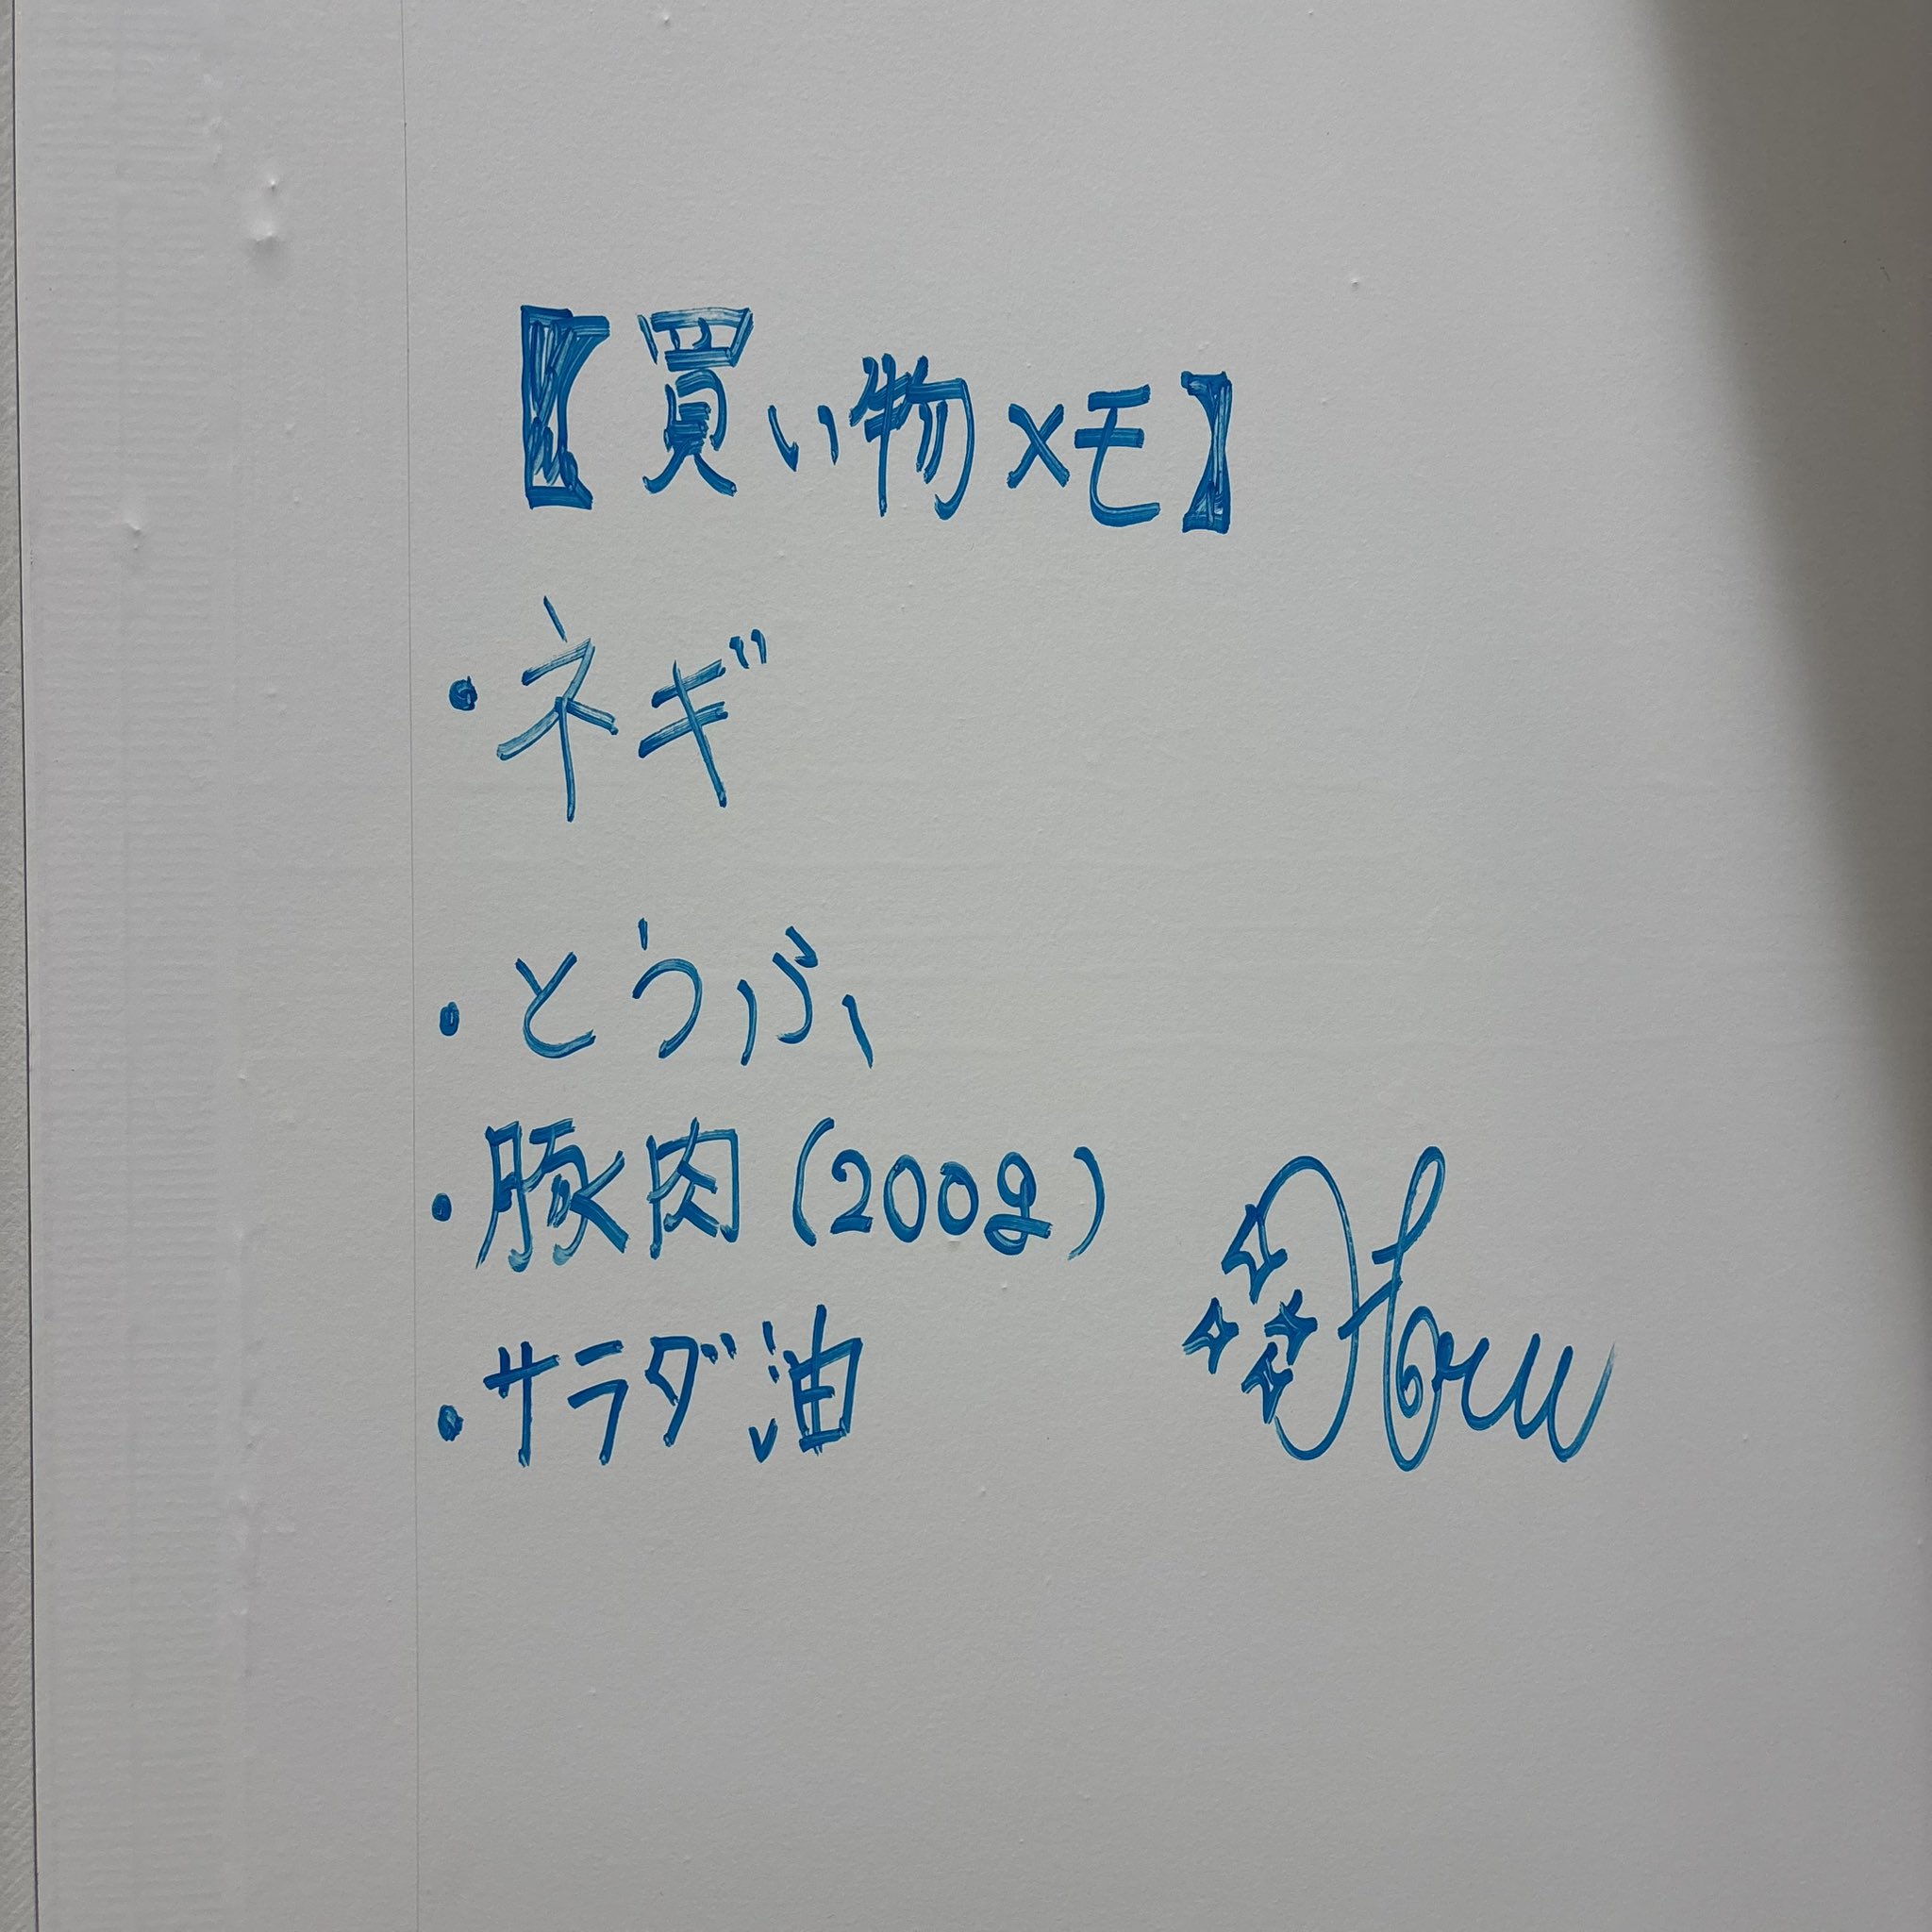 【買い物メモ】
・ネギ
・とうふ
・豚肉(200g)
・サラダ油